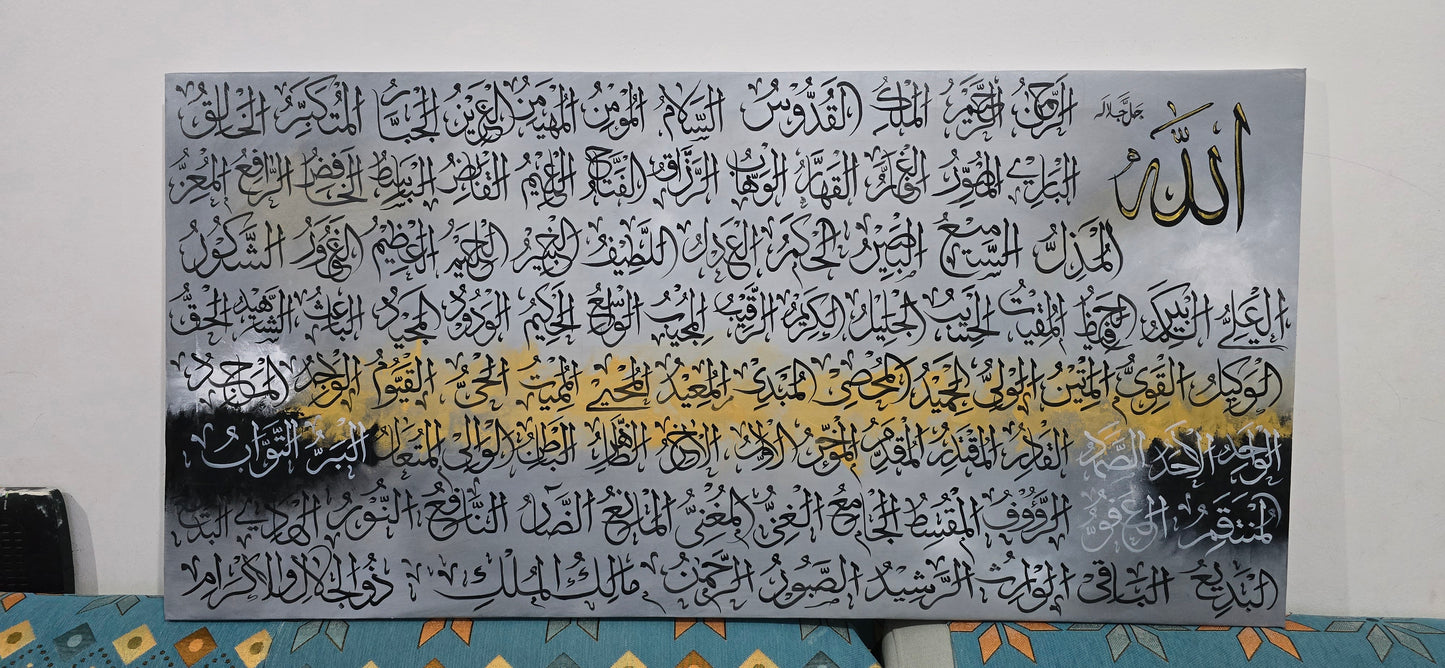 الله جل جلاله
الرحمن الرحيم الملك القدوس السلام المؤمن المهيمن العزيز الجبار المتكبر الخالق
البارئ المصور الغفار القهار الوهاب الرزاق الفتاح العليم القابض الباسط الخافض الرافع المعز
المذل السميع البصير الحكم العدل اللطيف الخبير الحليم العظيم الغفور الشكور
العلي الكبير الحفيظ المقيت الحسيب الجليل الكريم الرقيب المجيب الواسع الحكيم الودود المجيد الباعث الشهيد الحق
الوكيل القوي المتين الولي الحميد المحصي المبدئ المعيد المحيي المميت الحي القيوم الواجد الماجد
الواحد الاحد الصمد القادر المقتدر المقدم المؤخر الأول الآخر الظاهر الباطن الوالي المتعال البر التواب
المنتقم العفو الرؤوف المقسط الجامع الغني المغني المانع الضار النافع النور الهادي البديع
البديع الباقي الوارث الرشيد الصبور الرحمن مالك الملك ذو الجلال والاكرام